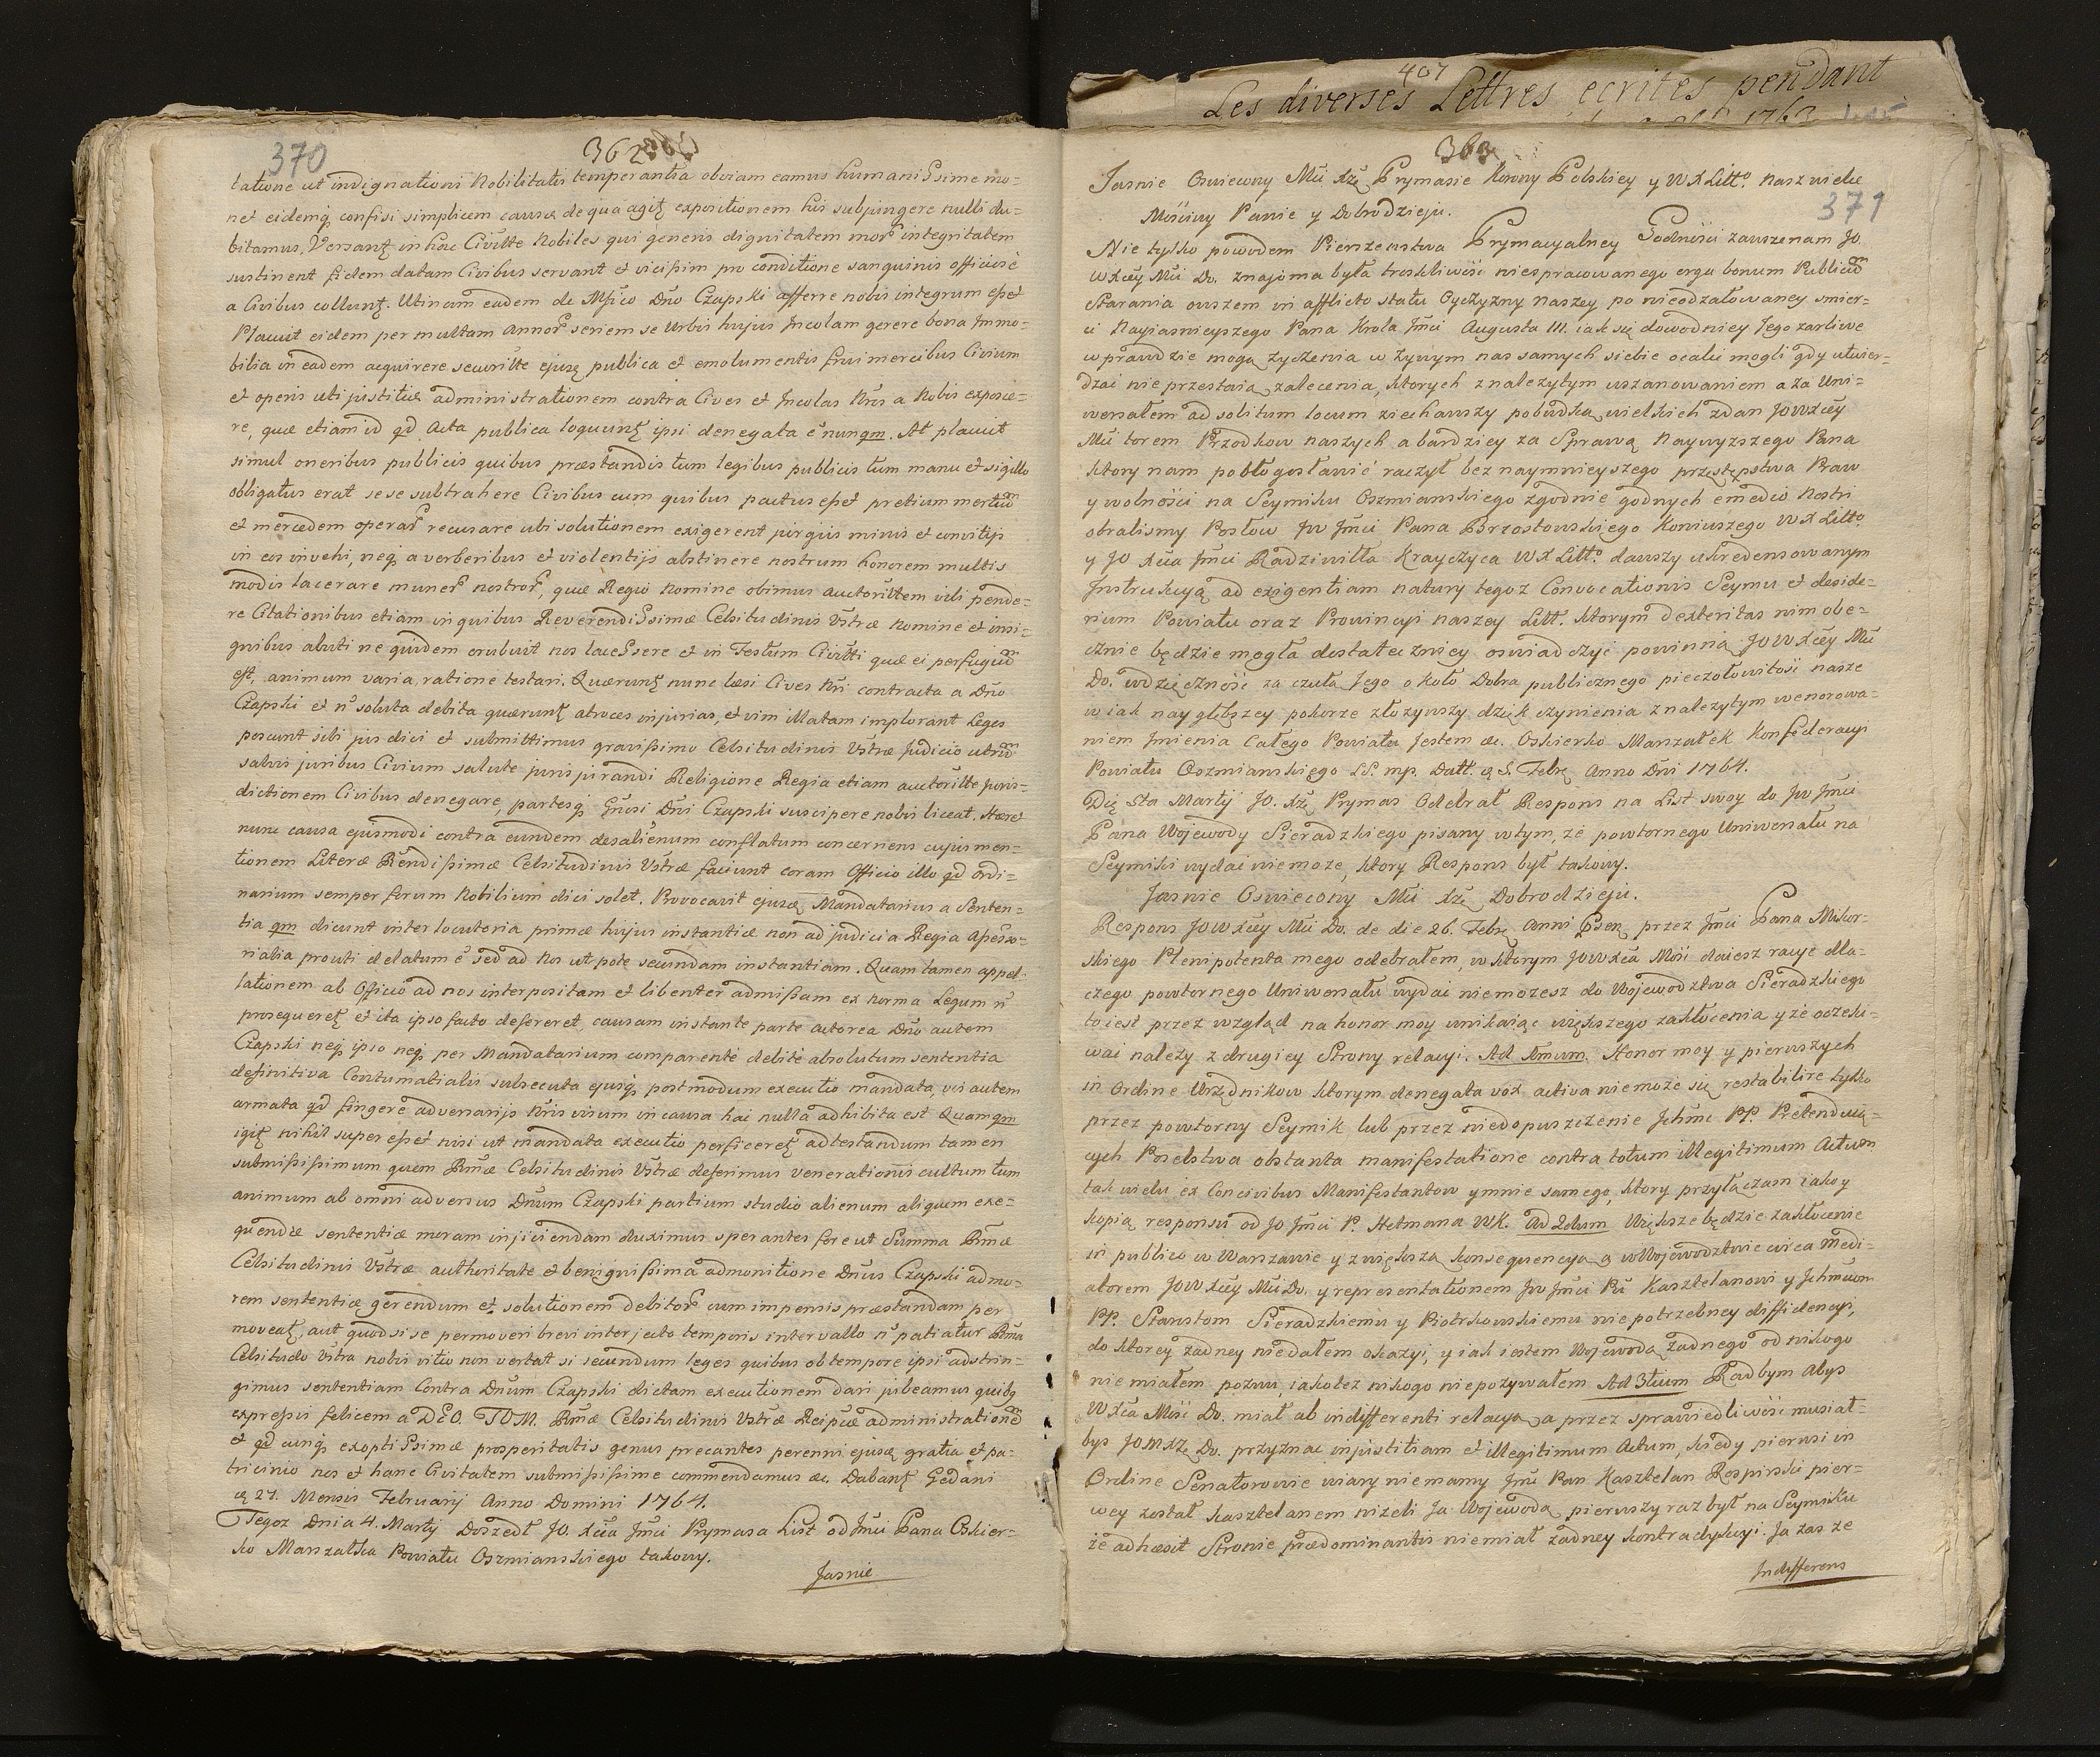 407
Les diverses Lettres ecrites pendant
1763
370
362
tatione ut indignationi Nobilitatis temperantia obviam eamus humanissime mo=
net eidemq confisi simplicem causæ de qua agitz expositionem his subjungere nulli du=
bitamus. Versantz in hac Civitte Nobiles qui generis dignitatem mor integritatem
sustinent fidem datam Civibus servant et vicissim pro conditione sanguinis officiose
a Civibus colluntz. Utinam eadem de Mfico Dno Czapski afferre nobis integrum esset
Placuit eidem per multam Annor seriem se Urbis hujus Incolam gerere bona Immo=
bilia in eadem acquirere securitte ejusq publica et emolumentis frui mercibus Civium
et operis uti justitiæ administrationem contra Cives et Incolas Nros a Nobis exposce=
re, quæ etiam id qd Acta publica loquuntz ipsi denegata e nunqm. At placuit
simul oneribus publicis quibus præstandis tum legibus publicis tum manu et sigillo
obligatus erat sese subtrahere Civibus cum quibus pactus esset pretium mertium
et mercedem operar recusare ubi solutionem exigerent jurgiis minis et convitijs
in eos invehi, neq a verberibus et violentijs abstinere nostrum honorem multis
modis lacerare muner nostror, quæ Regio Nomine obimus auctorittem vili pende=
re Citationibus etiam in quibus Reverendissimæ Celsitudinis Vstræ Nomine et insi=
gnibus abuti ne quidem erubuit nos lacessere et in Testum Civitti quæ ei perfugium
est, animum varia ratione testari. Quæruntz nunc læsi Cives Nri contracta a Dno
Czapski et n soluta debita quæruntz atroces injurias, et vim illatam implorant Leges
poscunt sibi jus dici et submittimus gravissimo Celsitudinis Vstræ Judicio utrum
salvis juribus Civium salute jurisjurandi Religione Regia etiam auctoritte Juris=
dictionem Civibus denegare, partesq Gnosi Dni Czapski suscipere nobis liceat. Hæret
nunc causa ejusmodi contra eundem desalienum conflatum concernens cujus men=
tionem Literæ Rendissimæ Celsitudinis Vstræ faciunt coram Officio illo qd ordi=
narium semper forum Nobilium dici solet. Provocavit ejusq Mandatarius a Senten=
tia qm dicunt interlocutoria primæ hujus instantiæ non ad judicia Regia Assesso=
rialia prouti delatum e sed ad Nos ut pote secundam instantiam. Quam tamen appel=
lationem ab Officio ad nos interpositam et libenter admissam ex norma Legum n
prosequeretz et ita ipso facto desereret, causam instante parte actorea Dno autem
Czapski neq ipso neq per Mandatarium comparente debite absolutum sententia
definitiva Contumatialis subsecuta ejusq postmodum executio mandata, vis autem
armata qd fingere adversarijs Nris visum in causa hac nulla adhibita est Quamqm
igitz nihil super esset nisi ut mandata executio perficeretz adtestandum tamen
submississimum quem Rmæ Celsitudinis Vstræ deferimus venerationis cultum tum
animum ab omni adversus Dnum Czapski partium studio alienum aliquem exe=
quendæ sententiæ moram injiciendam duximus sperantes fore ut Summa Rmæ
Celsitudinis Vstræ authoritate et benignissima admonitione Dnus Czapski ad mo=
rem sententiæ gerendum et solutionem debitor cum impensis præstandam per
moveatz, aut quod si se permoveri brevi interjecto temporis intervallo n patiatur Rma
Celsitudo Vstra nobis vitio non vertat si secundum leges quibus obtempore ipsi adstrin=
gimus sententiam Contra Dnum Czapski dictam executionem dari jubeamus quibq
expressis felicem a DEO. TOM. Rmæ Celsitudinis Vstræ Reipcæ administrationem
et qd cunq exoptissimæ prosperitatis genus precantes perenni ejusq gratia et pa=
trocinio nos et hanc Civitatem submississime commendamus &c. Dabantz Gedani
27. Mensis Februarij Anno Domini 1764.
Tegoz Dnia 4. Martij Doszedł JO. Xcia Jmci Prymasa List od Jmci Pana Oskier=
ko Marszałka Powiatu Oszmianskiego takowy.
Jasnie
363
371
Jasnie Oswiecony Mci Xże Prymasie Korony Polskiey y WXLitto. nasz wielce
Mościwy Panie y Dobrodzieju.
Nie tylko powodem Pierszenstwa Prymacyalney Godności zawsze nam JO.
WXcey Mci Do. znajoma była troskliwość niespracowanego erga bonum Publicum
Starania owszem in afflicto statu Oyczyzny naszey po nieodżałowaney smier=
ci Nayiasnieyszego Pana Krola Jmci Augusta III. iak się dowodniey Jego zarliwe
wprawdzie mogą zyczenia w żywym nas samych siebie ocalić mogli gdy utwier=
dzać nie przestaią zalecenia, ktorych znalezytym uszanowaniem a za Uni=
wersałem ad solitum locum ziechawszy pobudką wielkich zdan JOWXcey
Mci torem Przodkow naszych a bardziey za Sprawą Naywyzszego Pana
ktory nam pobłogosławić raczył bez naymnieyszego przestępstwa Praw
y wolności na Seymiku Oszmianskiego zgodnie godnych e medio Nostri
obralismy Posłow JW Jmci Pana Brzostowskiego Koniuszego WXLitto
y JO Xcia Jmci Radziwiłła Krayczyca WXLitto. dawszy ukredensowanym
Instrukcyą ad exigentiam natury tegoz Convocationis Seymu et deside=
rium Powiatu oraz Prowincyi naszey Litt. ktorym dexteritas nim obe=
cznie będzie mogła dostateczniey oswiadczyć powinną JOWXcey Mci
Do. wdzięczność za czułą Jego około Dobra publicznego pieczołowitość nasze
w iak naygłębszey pokorze złozywszy dzięk czynienia z nalezytym wenerowa=
niem Imienia Całego Powiatu Jestem &c. Oskierko Marszałek Konfederacyi
Powiatu Oszmianskiego LS. mp. Datt. 5. Febr Anno Dni 1764.
Die 5ta Martij JO. Xże Prymas Odebrał Respons na List swoy do JW Jmci
Pana Wojewody Sieradzkiego pisany wtym, że powtornego Uniwersału na
Seymiki wydać niemoze, ktory Respons był takowy.
Jasnie Oswiecony Mci Xże Dobrodzieju.
Respons JOWXcey Mci Do. de die 26. Febr Anni Psen przez Jmci Pana Mikor=
skiego Plenipotenta mego odebrałem, w ktorym JOWXca Mść daiesz racye dla=
czego powtornego Uniwersału wydać niemozesz do Wojewodztwa Sieradzkiego
to iest przez wzgląd na honor moy unikaiąc większego zakłocenia y ze oczeki=
wać należy z drugiey Strony relacyi. Ad 1mum. Honor moy y pierwszych
in Ordine Urzędnikow ktorym denegata vox activa niemoże się restabilire tylko
przez powtorny Seymik lub przez niedopuszczenie Ichmc PP. Pretenduią=
cych Poselstwa obstante manifestatione contra totum illegitimum Actum
tak wielu ex Concivibus Manifestantow y mnie samego, ktory przyłączam iako y
kopią responsu od JO Jmci P. Hetmana WK. Ad 2dum Większe będzie zakłocenie
in publico w Warszawie y z większą konsequencyą a w Wojewodztwie circa Medi=
atorem JOWXcey Mci Do. y representationem JW Jmci Pu Kasztelanowi y Ichmciom
PP. Starostom Sieradzkiemu y Piotrkowskiemu niepotrzebney diffidencyi,
do ktorey zadney niedałem okazyi, y iak iestem Wojewodą żadnego od nikogo
nie miałem pozwu, iakotez nikogo niepozywałem Ad 3tium Radbym Abys
WXca Mść Do. miał ab indifferenti relacyą a przez sprawiedliwość musiał=
bys JOMXże Do. przyznac injustitiam et illegitimum Actum, kiedy pierwsi in
Ordine Senatorowie wiary niemamy Jmc Pan Kasztelan Rospirski pier=
wey został kasztelanem niżeli Ja Wojewodą, pierwszy raz był na Seymiku
że adhæsit Stronie prædominantis niemiał żadney kontradykcyi. Ja zas ze
Indifferens